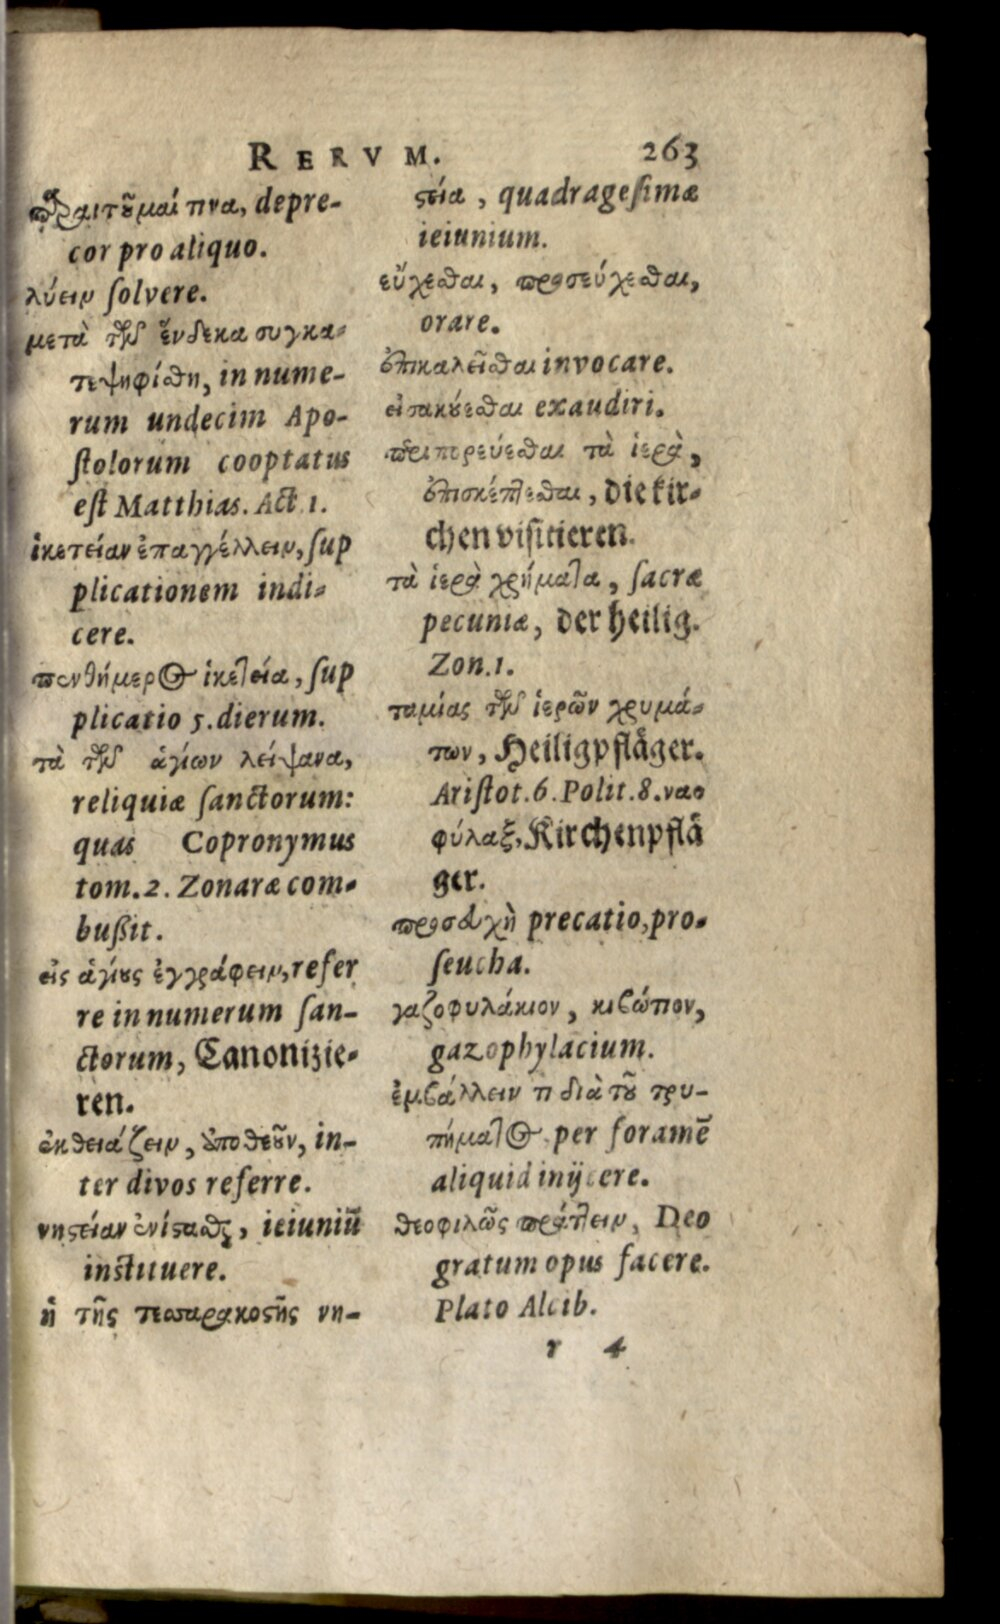 RERVM. 263
παραιτοῦμαί τινα, depre-
cor pro aliquo.
λύειν ſolvere.
μετὰ τῶν ἕνδεκα συγκα-
τεψηφίσθη, in nume-
rum undecim Apo-
ſtolorum cooptatus
eſt Matthias. Act. 1.
ἱκετείαν ἐπαγγέλλειν, ſup
plicationem indi-
cere.
πενθήμερος ἱκετεία, ſup
plicatio 5. dierum.
τὰ τῶν ἁγίων λείψανα,
reliquiæ ſanctorum:
quas Copronymus
tom. 2. Zonaræ com-
bußit.
εἰς ἁγίους ἐγγράφειν, refer
re in numerum ſan-
ctorum, Canonizie-
ren.
ἐκθειάζειν, ἀποθεοῦν, in-
ter divos referre.
νηστείαν ἐνίστασθαι, ieiuniū
inſtituere.
ἡ τῆς τεσσαρακοστῆς νη-
στεία, quadrageſimæ
ieiunium.
εὔχεσθαι, προσεύχεσθαι,
orare.
ἐπικαλεῖσθαι invocare.
εἰσακούεσθαι exaudiri.
περιπορεύεσθαι τὰ ἱερὰ,
ἐπισκέπτεσθαι, die kir-
chen viſitieren.
τὰ ἱερὰ χρήματα, ſacræ
pecuniæ, der heilig.
Zon. 1.
ταμίας τῶν ἱερῶν χρυμά-
των, Heiligpflåger.
Ariſtot. 6. Polit. 8. ναο
φύλαξ, Kirchenpflå
ger.
προσευχὴ precatio, pro-
ſeucha.
γαζοφυλάκιον, κιβώτιον,
gazophylacium.
ἐμβάλλειν τι διὰ τοῦ τρυ-
πήματος per foramē
aliquid inijcere.
θεοφιλῶς πράττειν, Deo
gratum opus facere.
Plato Alcib.
r 4